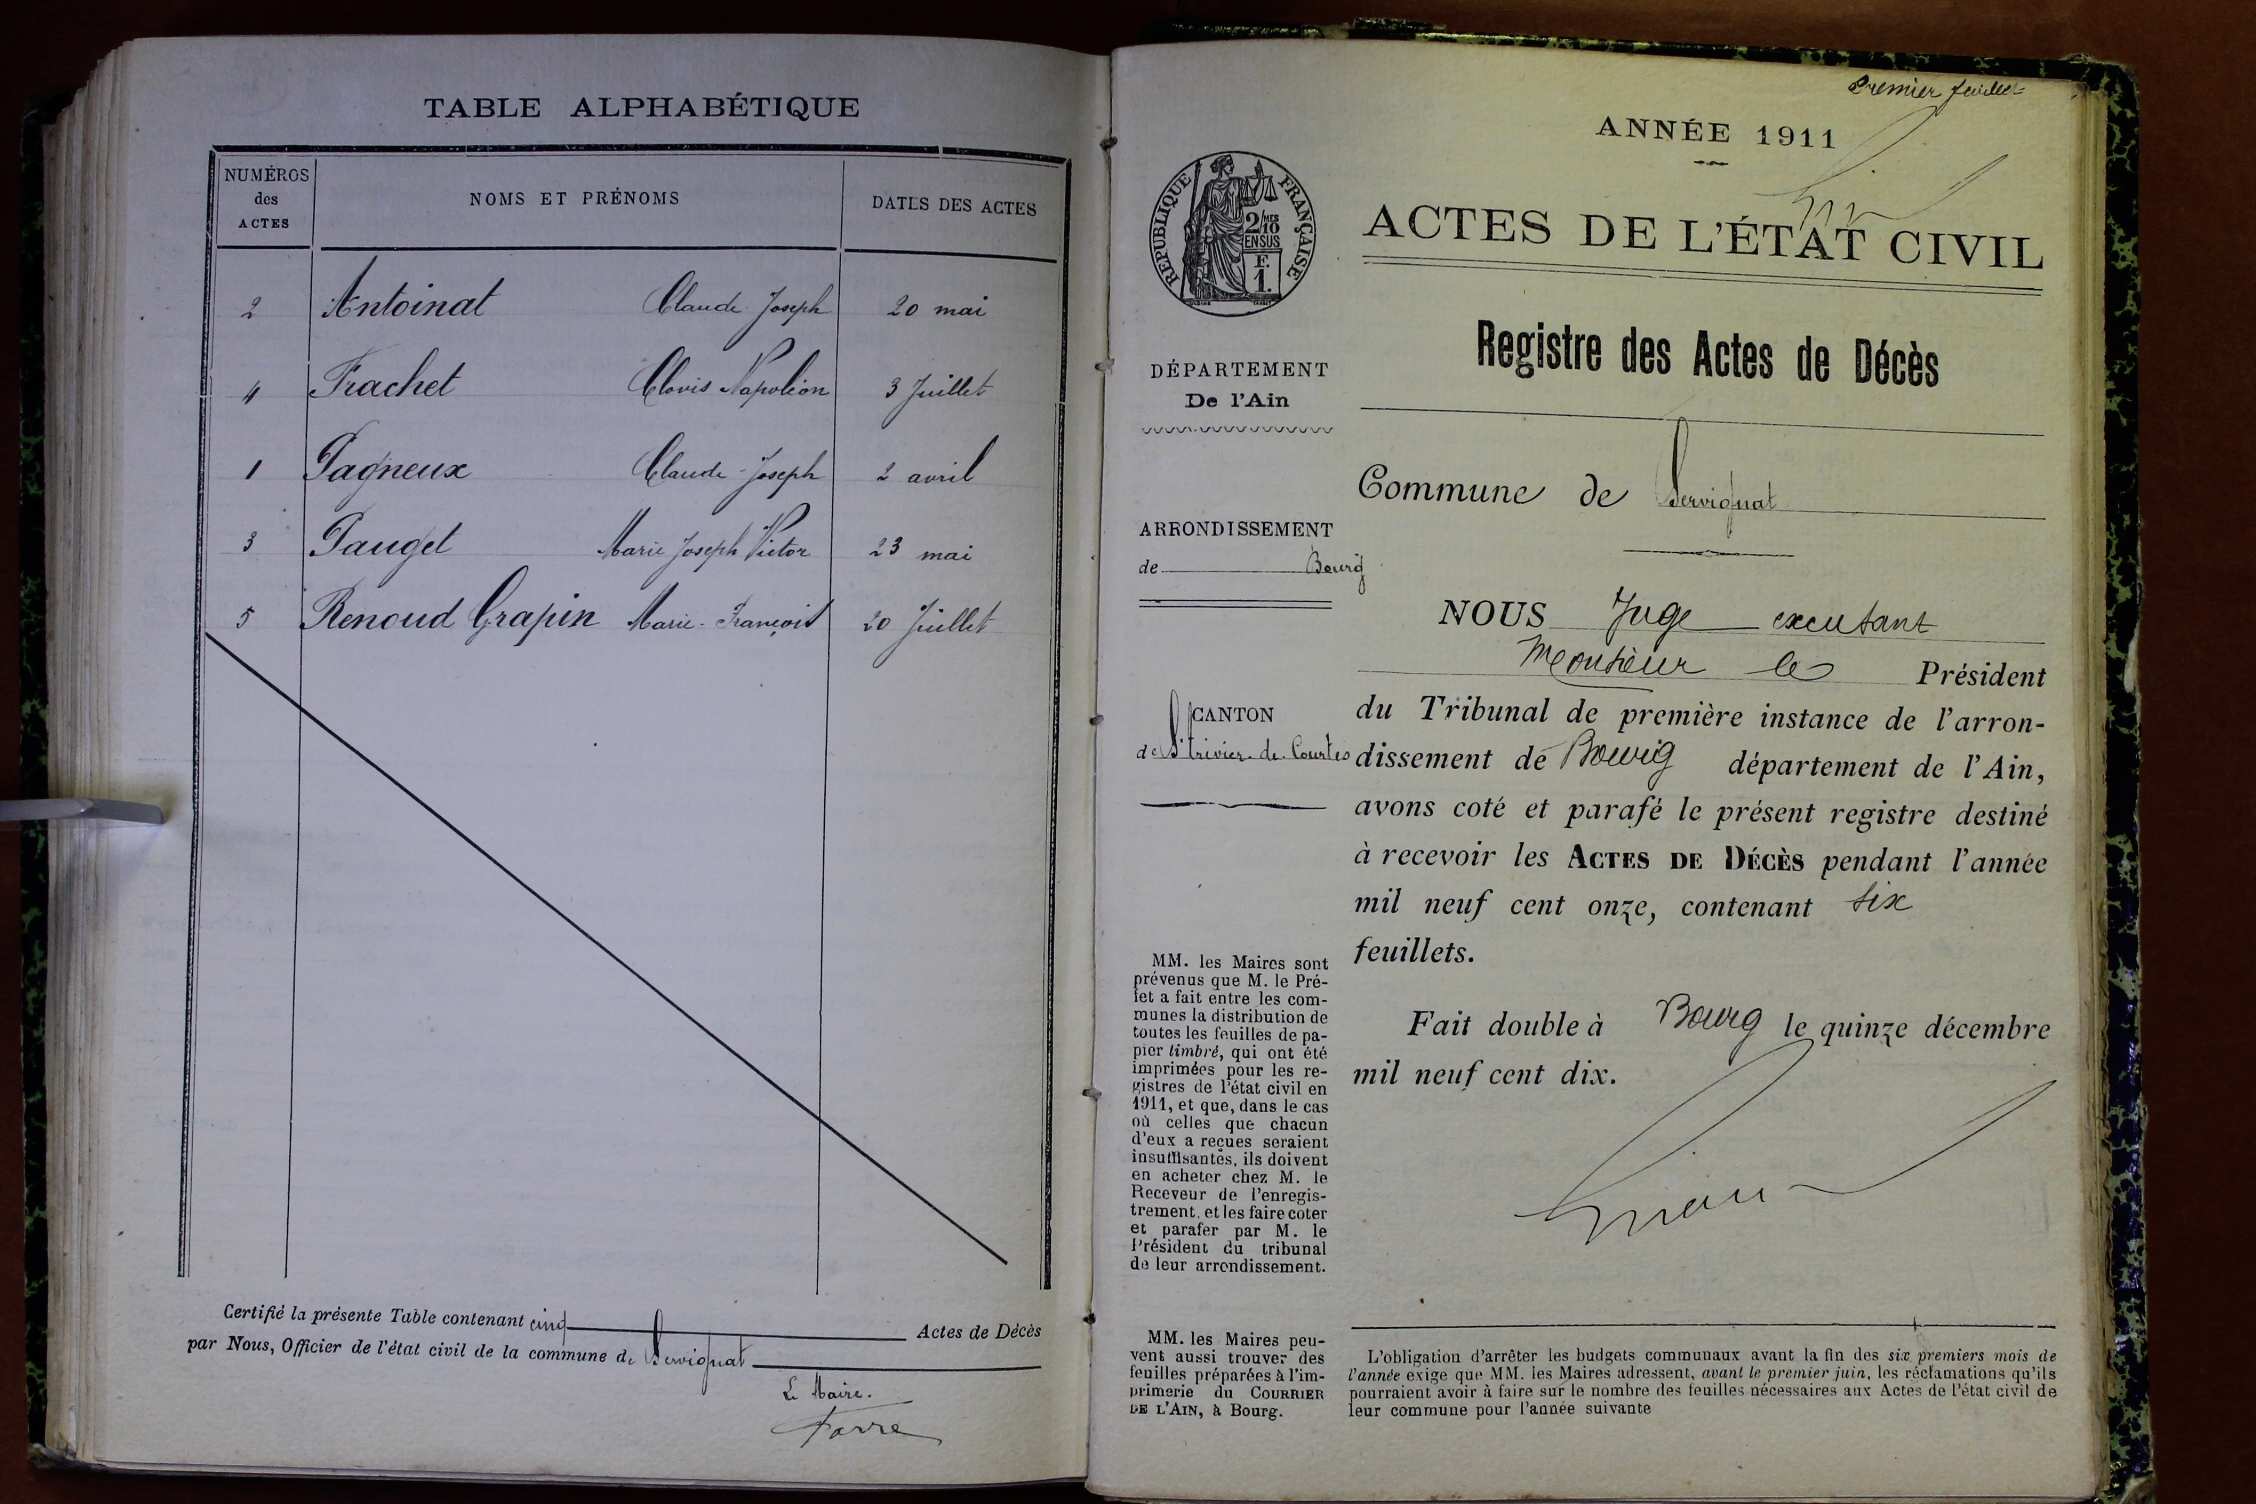 TABLE ALPHABÉTIQUE
NUMÉROS des ACTES
NOMS ET PRÉNOMS
DATES DES ACTES
2 Antoinat Claude Joseph 20 mai
4 Frachet Clovis Napoléon 3 Juillet
1 Pagneux Claude-Joseph 2 avril
3 Pauget Marie Joseph Victor 23 mai
5 Renoud Grapin Marie-François 20 Juillet
Certifié la présente Table contenant cinq Actes de Décès
par Nous, Officier de l'état civil de la commune de Servignat
Le Maire.
Farre
Premier feuillet
ANNÉE 1911
ACTES DE L'ÉTAT CIVIL
RÉPUBLIQUE FRANÇAISE
2/10 MES
EN SUS
F.
1.
DÉPARTEMENT
De l'Ain
ARRONDISSEMENT
de Bourg
CANTON
de St Trivier-de-Courtes
MM. les Maires sont
prévenus que M. le Pré-
fet a fait entre les com-
munes la distribution de
toutes les feuilles de pa-
pier timbré, qui ont été
imprimées pour les re-
gistres de l'état civil en
1911, et que, dans le cas
où celles que chacun
d'eux a reçues seraient
insuffisantes, ils doivent
en acheter chez M. le
Receveur de l'enregis-
trement, et les faire coter
et parafer par M. le
Président du tribunal
de leur arrondissement.
MM. les Maires peu-
vent aussi trouver des
feuilles préparées à l'im-
primerie du COURRIER
DE L'AIN, à Bourg.
Registre des Actes de Décès
Commune de Servignat
NOUS Juge excutant
Monsieur le Président
du Tribunal de première instance de l'arron-
dissement de Bourg département de l'Ain,
avons coté et parafé le présent registre destiné
à recevoir les ACTES DE DÉCÈS pendant l'année
mil neuf cent onze, contenant six
feuillets.
Fait double à Bourg le quinze décembre
mil neuf cent dix.
L'obligation d'arrêter les budgets communaux avant la fin des six premiers mois de
l'année exige que MM. les Maires adressent, avant le premier juin, les réclamations qu'ils
pourraient avoir à faire sur le nombre des feuilles nécessaires aux Actes de l'état civil de
leur commune pour l'année suivante